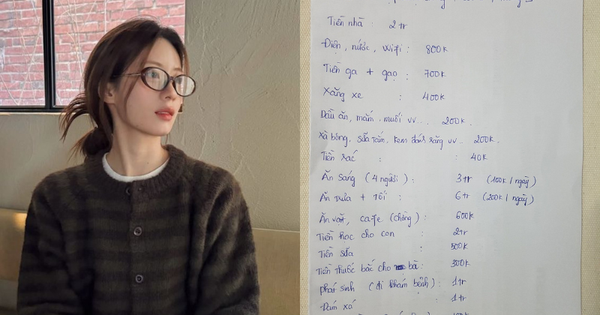 Tiền nhà : 2 tr
Điện, nước, wifi : 800k
Tiền ga + gạo : 700k
Xăng xe : 400k
Dầu ăn, mắm, muối vv.. 200k
Xà bông, sữa tắm, kem đánh răng vv.. 200k
Tiền rác : 40k
Ăn sáng (4 người) : 3 tr (100k / ngày)
Ăn trưa + tối : 6 tr (200k / ngày)
Ăn vặt, cafe (chồng) : 600k
Tiền học cho con : 2 tr
Tiền sữa : 300k
Tiền thuốc bắc cho bà : 300k
phát sinh (đi khám bệnh) : 1 tr
Đám xá : 1 tr